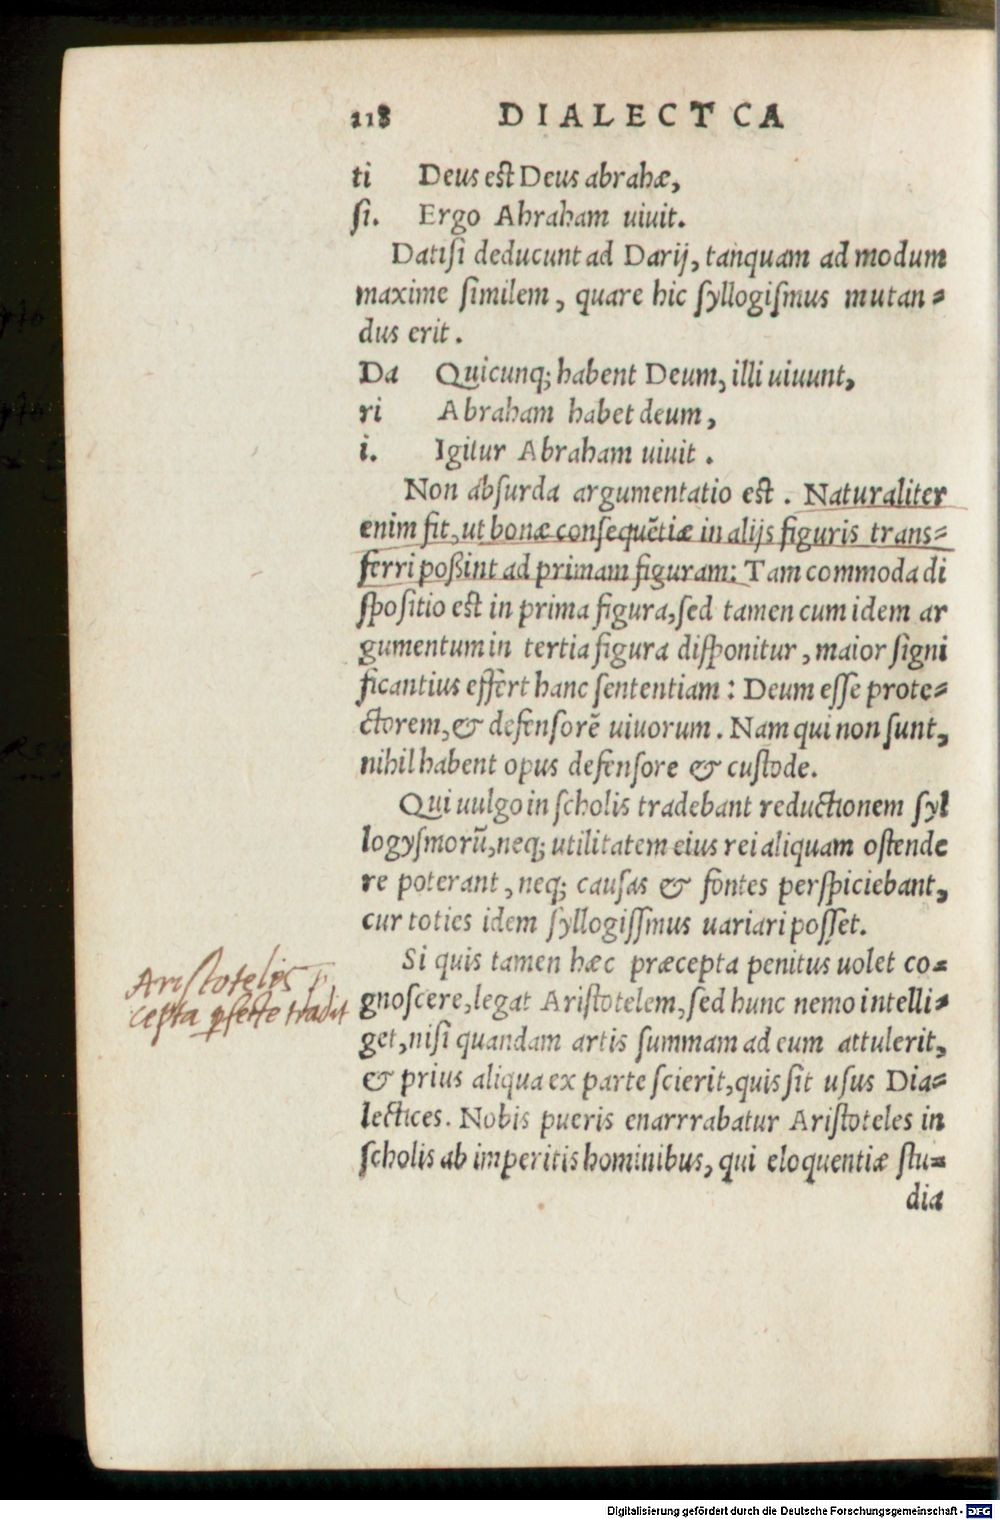 118 DIALECTCA
ti Deus est Deus abrahæ,
ſi. Ergo Abraham uiuit.
Datiſi deducunt ad Darij, tanquam ad modum
maxime ſimilem, quare hic ſyllogiſmus mutan=
dus erit.
Da Quicunq; habent Deum, illi uiuunt,
ri Abraham habet deum,
i. Igitur Abraham uiuit.
Non abſurda argumentatio est. Naturaliter
enim fit, ut bonæ conſequẽtiæ in alijs figuris trans=
ferri poßint ad primam figuram: Tam commoda di
ſpoſitio est in prima figura, ſed tamen cum idem ar
gumentum in tertia figura diſponitur, maior ſigni
ficantius effert hanc ſententiam: Deum eſſe prote=
ctorem, & defenſorẽ uiuorum. Nam qui non ſunt,
nihil habent opus defenſore & cuſtode.
Qui uulgo in ſcholis tradebant reductionem ſyl
logyſmorũ, neq; utilitatem eius rei aliquam oſtende
re poterant, neq; cauſas & fontes perſpiciebant,
cur toties idem ſyllogiſſmus uariari poſſet.
Si quis tamen hæc præcepta penitus uolet co=
gnoſcere, legat Ariſtotelem, ſed hunc nemo intelli=
get, niſi quandam artis ſummam ad eum attulerit,
& prius aliqua ex parte ſcierit, quis ſit uſus Dia=
lectices. Nobis pueris enarrrabatur Ariſtoteles in
ſcholis ab imperitis hominibus, qui eloquentiæ ſtu=
dia
Ariſtotelis p̄
cepta ꝑfecte tradit
Digitalisierung gefördert durch die Deutsche Forschungsgemeinschaft - DFG